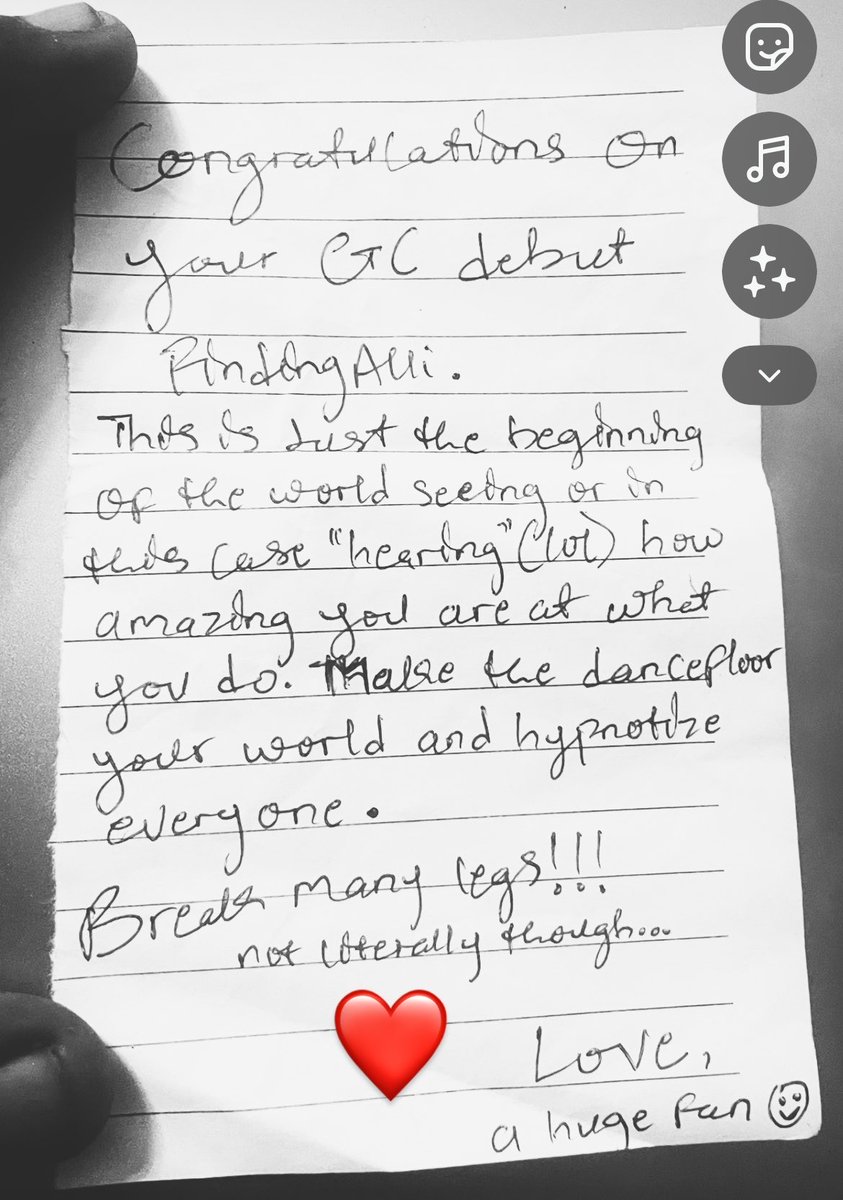 Congratulations on
your GC debut
FindingAlli.
This is Just the beginning
of the world seeing or in
this case "hearing" (lol) how
amazing you are at what
you do. Make the dancefloor
your world and hypnotize
everyone.
Break many legs!!!
not literally though...
Love,
a huge fan